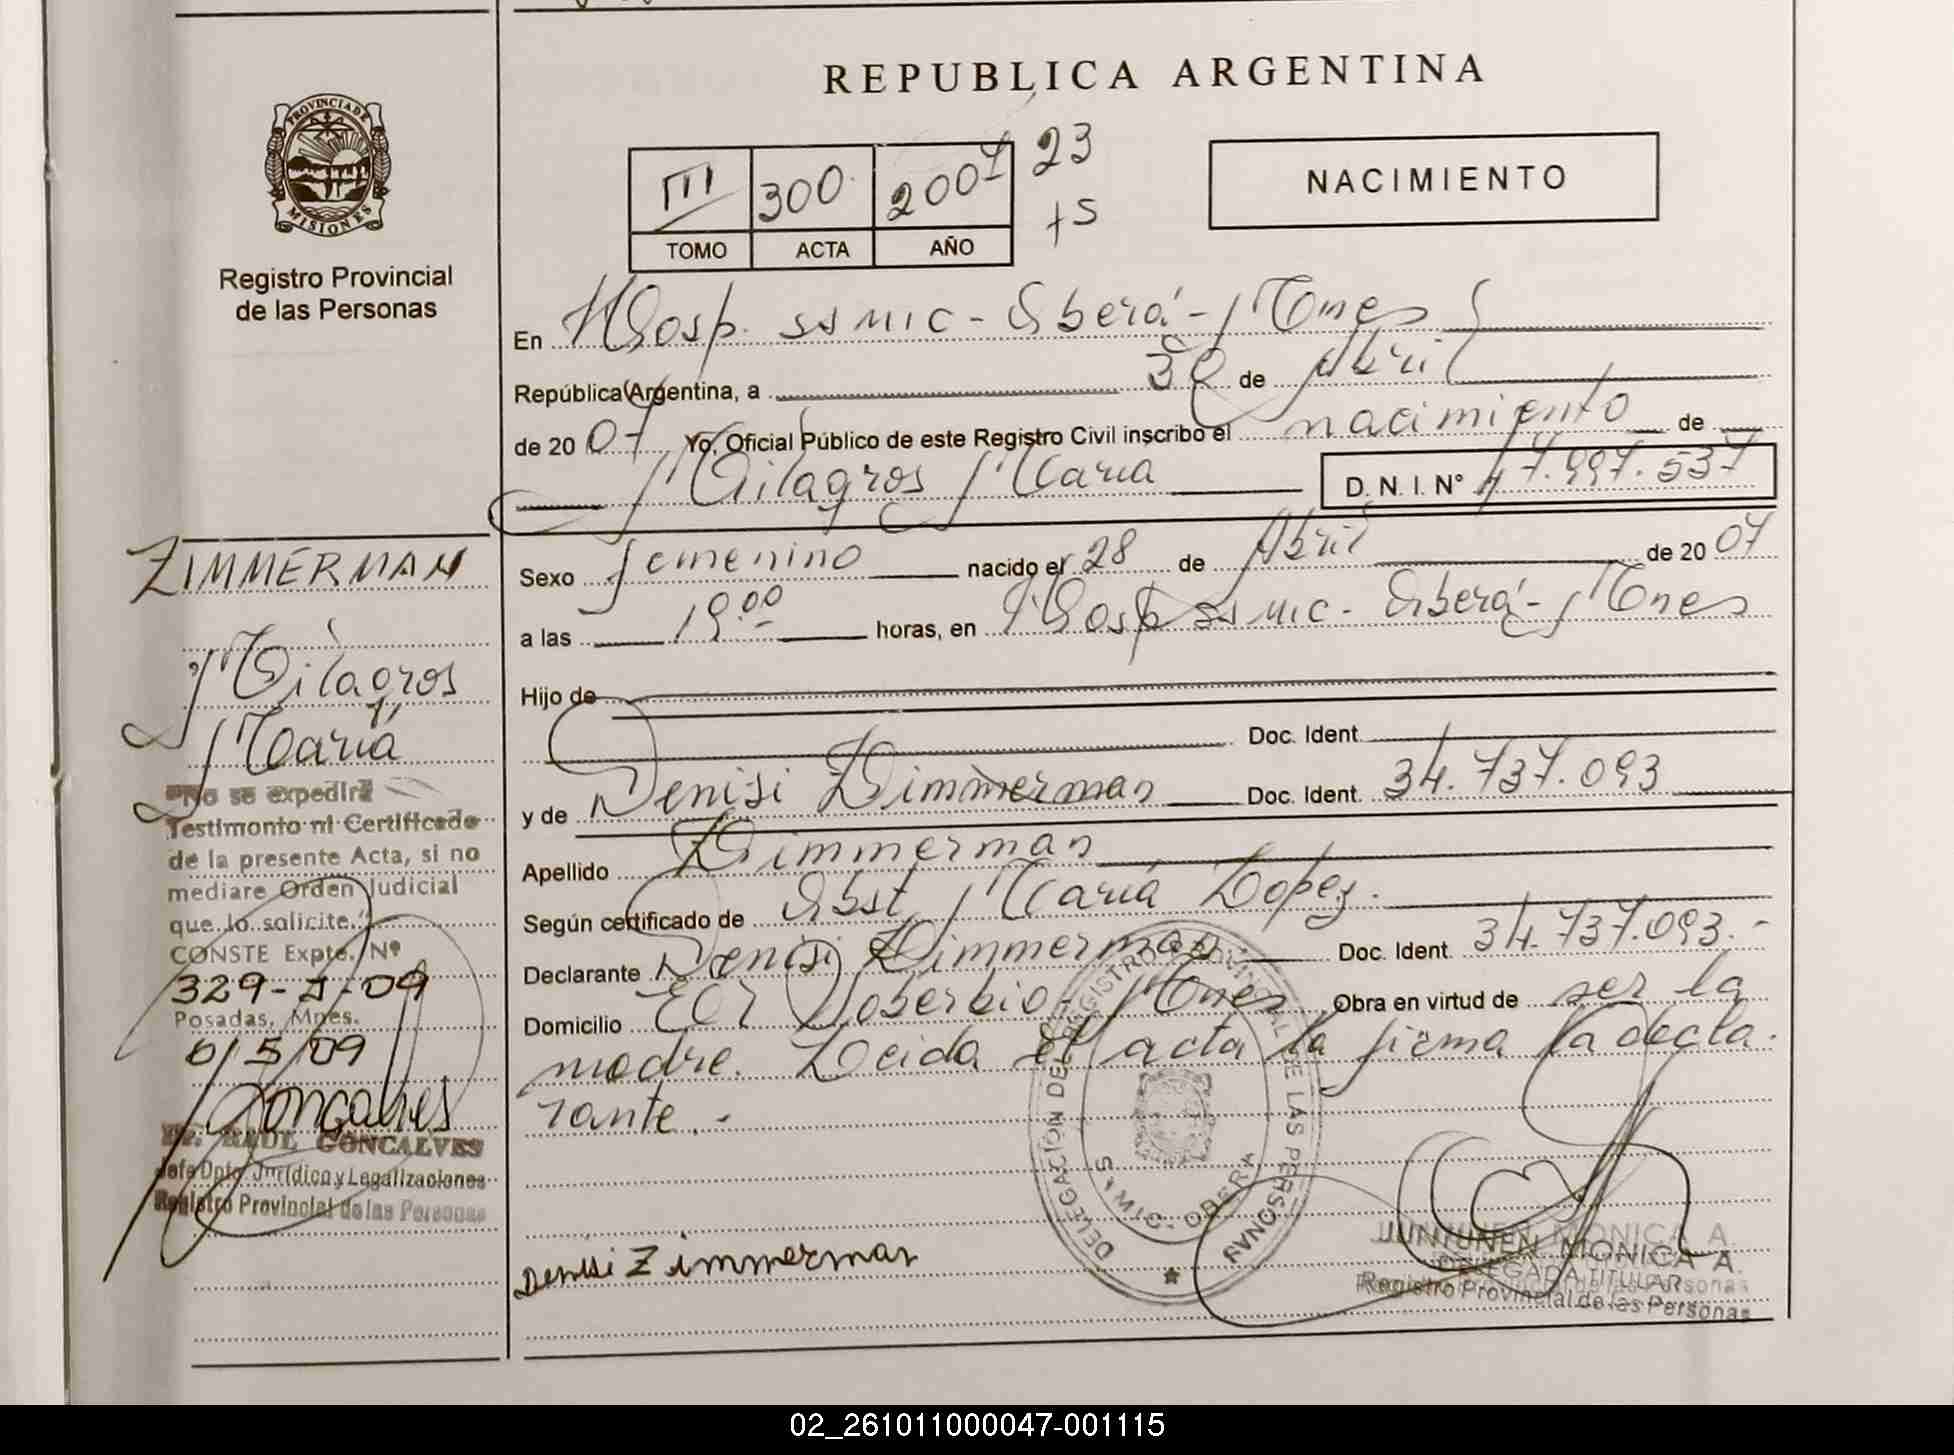 REPUBLICA ARGENTINA
PROVINCIA DE
MISIONES
Registro Provincial
de las Personas
III 300 2007 23
+5
TOMO ACTA AÑO
NACIMIENTO
En Hosp. SSMIC - Oberá - Mnes
República Argentina, a 30 de Abril
de 20 07 Yo, Oficial Público de este Registro Civil inscribo el nacimiento de
Milagros María D. N. I. Nº 47.997.537
Sexo femenino nacido el 28 de Abril de 20 07
a las 19:00 horas, en Hosp SSMIC - Oberá - Mnes
Hijo de
Doc. Ident.
y de Denisi Zimmerman Doc. Ident. 34.737.093
Apellido Zimmerman
Según certificado de Obst. María Lopez.
Declarante Denisi Zimmerman Doc. Ident. 34.737.093.-
Domicilio El Soberbio - Mnes Obra en virtud de ser la
madre. Leida el acta la firma la decla
rante.-
Denisi Zimmerman
DELEGACION DEL REGISTRO PROVINCIAL DE LAS PERSONAS
SAMIC - OBERA
JUNTUNEN MONICA A.
DELEGADA TITULAR
Registro Provincial de las Personas
ZIMMERMAN
Milagros
María
"No se expedirá
Testimonio ni Certificado
de la presente Acta, si no
mediare Orden Judicial
que lo solicite."
CONSTE Expte. Nº
329-J-09
Posadas, Mnes.
6/5/09
Goncalves
Dr. RAUL GONCALVES
Jefe Dpto. Jurídico y Legalizaciones
Registro Provincial de las Personas
02_261011000047-001115